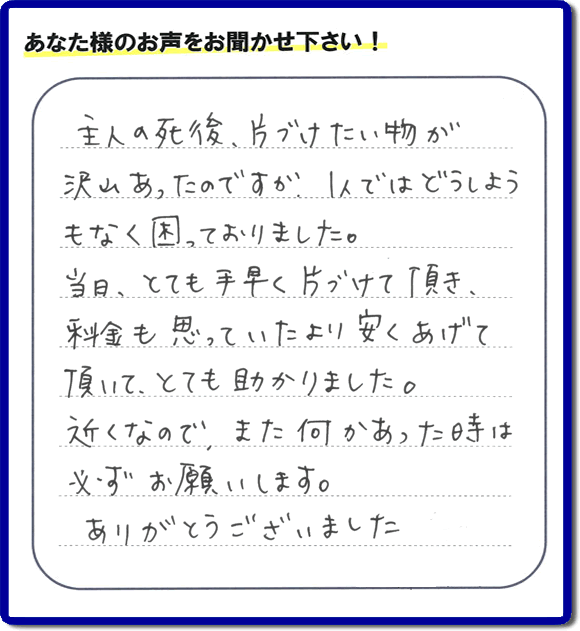 あなた様のお声をお聞かせ下さい！
主人の死後、片づけたい物が
沢山あったのですが、1人ではどうしよう
もなく困っておりました。
当日、とても手早く片づけて頂き、
料金も思っていたより安くあげて
頂いて、とても助かりました。
近くなので、また何かあった時は
必ずお願いします。
ありがとうございました